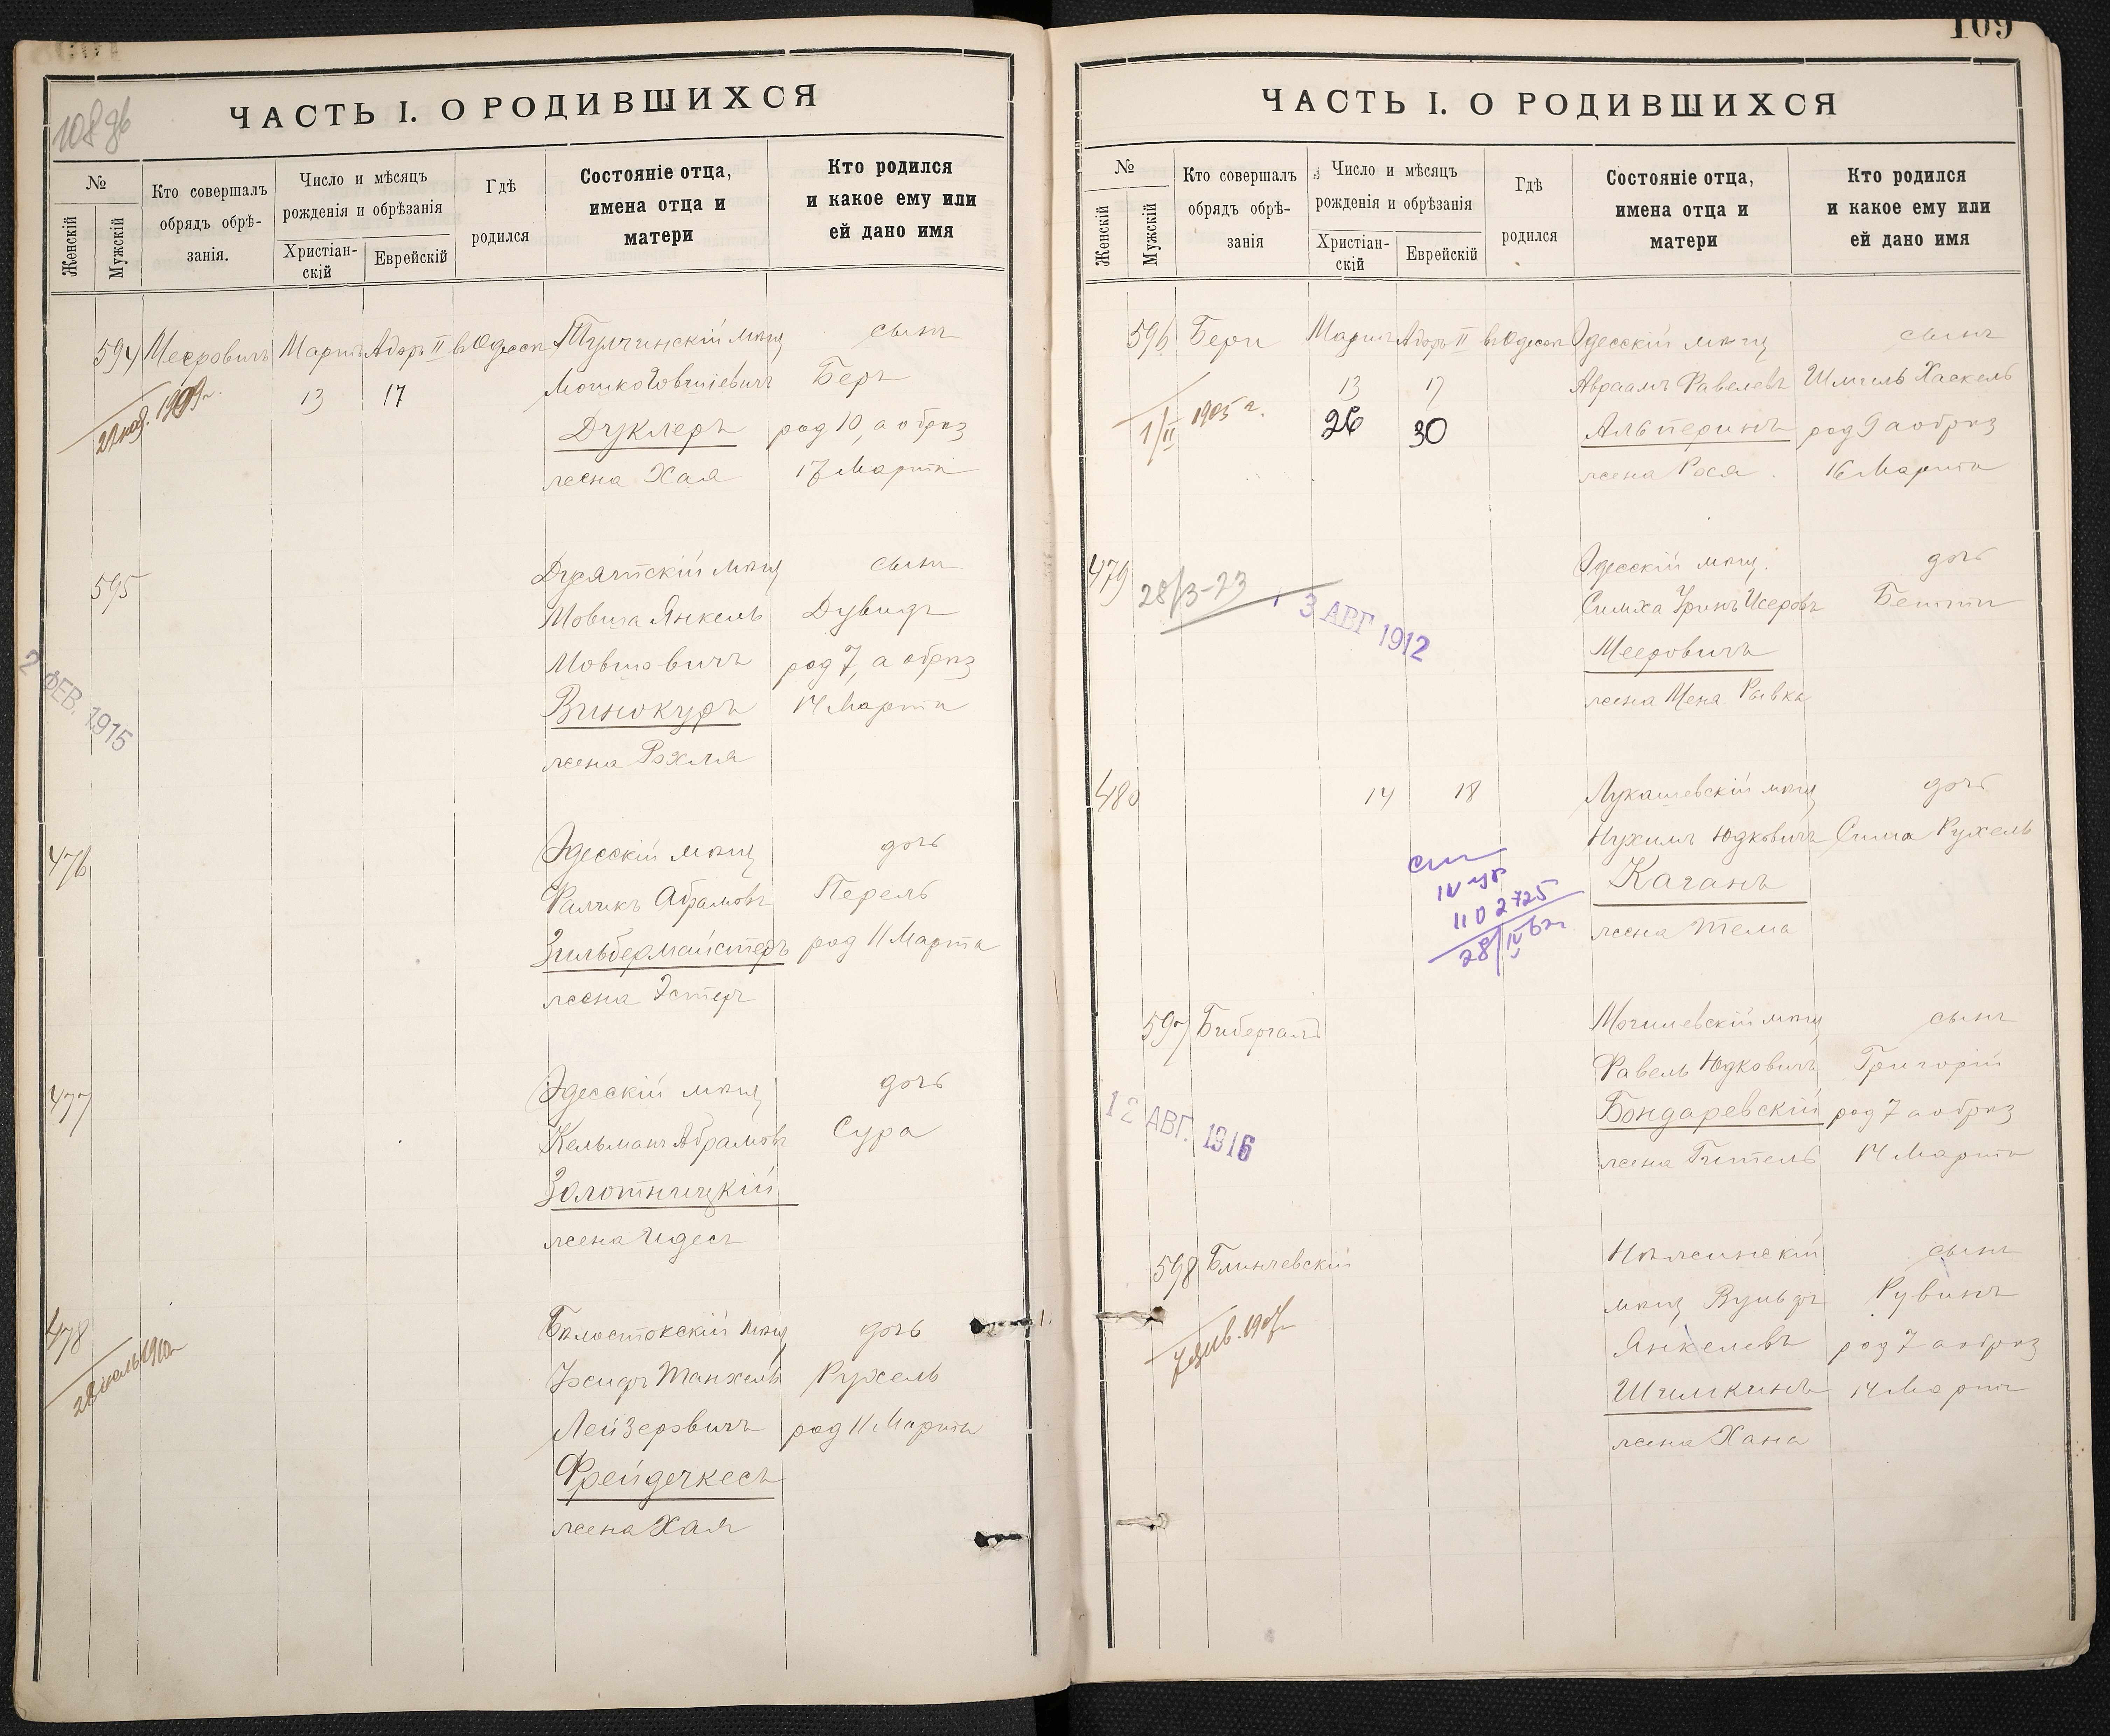 108 об
ЧАСТЬ I. О РОДИВШИХСЯ
№
Женскій
Мужскій
Кто совершалъ обрядъ обрѣ-занія.
Число и мѣсяцъ рожденія и обрѣзанія
Христіан-скій
Еврейскій
Гдѣ родился
Состояніе отца, имена отца и матери
Кто родился и какое ему или ей дано имя
594 Мееровичъ Марта Адаръ II въ Одессѣ Тульчинскій мѣщ сынъ
13 17 Мошко Іовшіевичъ Беръ
Дуклеръ род 10, а обрѣз
жена Хая 17 Марта
21 нояб. 1909 г.
595 мѣщ сынъ
Мовша Янкель Дувидъ
Мовшовичъ род 7, а обрѣз
Винокуръ 14 Марта
жена Рохля
2 ФЕВ. 1915
476 Одесскій мѣщ дочь
Фаликъ Абрамовъ Перель
Зильбермайстеръ род 11 Марта
жена Эстеръ
477 Одесскій мѣщ дочь
Кельманъ Абрамовъ Сура
Золотницкій
жена Идесъ
478 Бѣлостокскій мѣщ дочь
Іосифъ Танхель Рухель
Лейзеровичъ род 11 Марта
Фрейдечкесъ
жена Хая
109
ЧАСТЬ I. О РОДИВШИХСЯ
№
Женскій
Мужскій
Кто совершалъ обрядъ обрѣ-занія
Число и мѣсяцъ рожденія и обрѣзанія
Христіан-скій
Еврейскій
Гдѣ родился
Состояніе отца, имена отца и матери
Кто родился и какое ему или ей дано имя
596 Бери Марта Адаръ II въ Одессѣ Одесскій мѣщ сынъ
13 17 Авраамъ Фавелевъ Шмиль Хаскель
26 30 Альперинъ род 9 а обрѣз
жена Рося 16 Марта
1/II 1905 г.
479 Одесскій мѣщ. дочь
Симха Уринъ Исеровъ Бетти
Мееровичъ
жена Меня Рывка
28/3-23
3 АВГ 1912
480 14 18 Лукашевскій мѣщ дочь
Нухимъ Юдковичъ Сима Рухель
Каганъ
жена Тема
110 2725
28/IV 62г
597 Бибергалъ Могилевскій мѣщ сынъ
Фавель Юдковичъ Григорій
Бондаревскій род 7 а обрѣз
жена Гитель 14 Марта
12 АВГ. 1916
598 Блинчевскій Нѣжинскій сынъ
мѣщ Вульфъ Рувинъ
Янкелевъ род 7 а обрѣз
Шимкинъ 14 Март
жена Хана